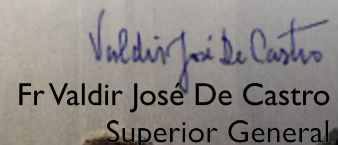 Valdir José De Castro
Fr Valdir José De Castro
Superior General